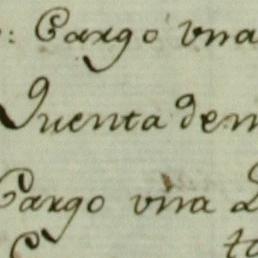 : Cargo vna
Quenta den
Cargo vna
to